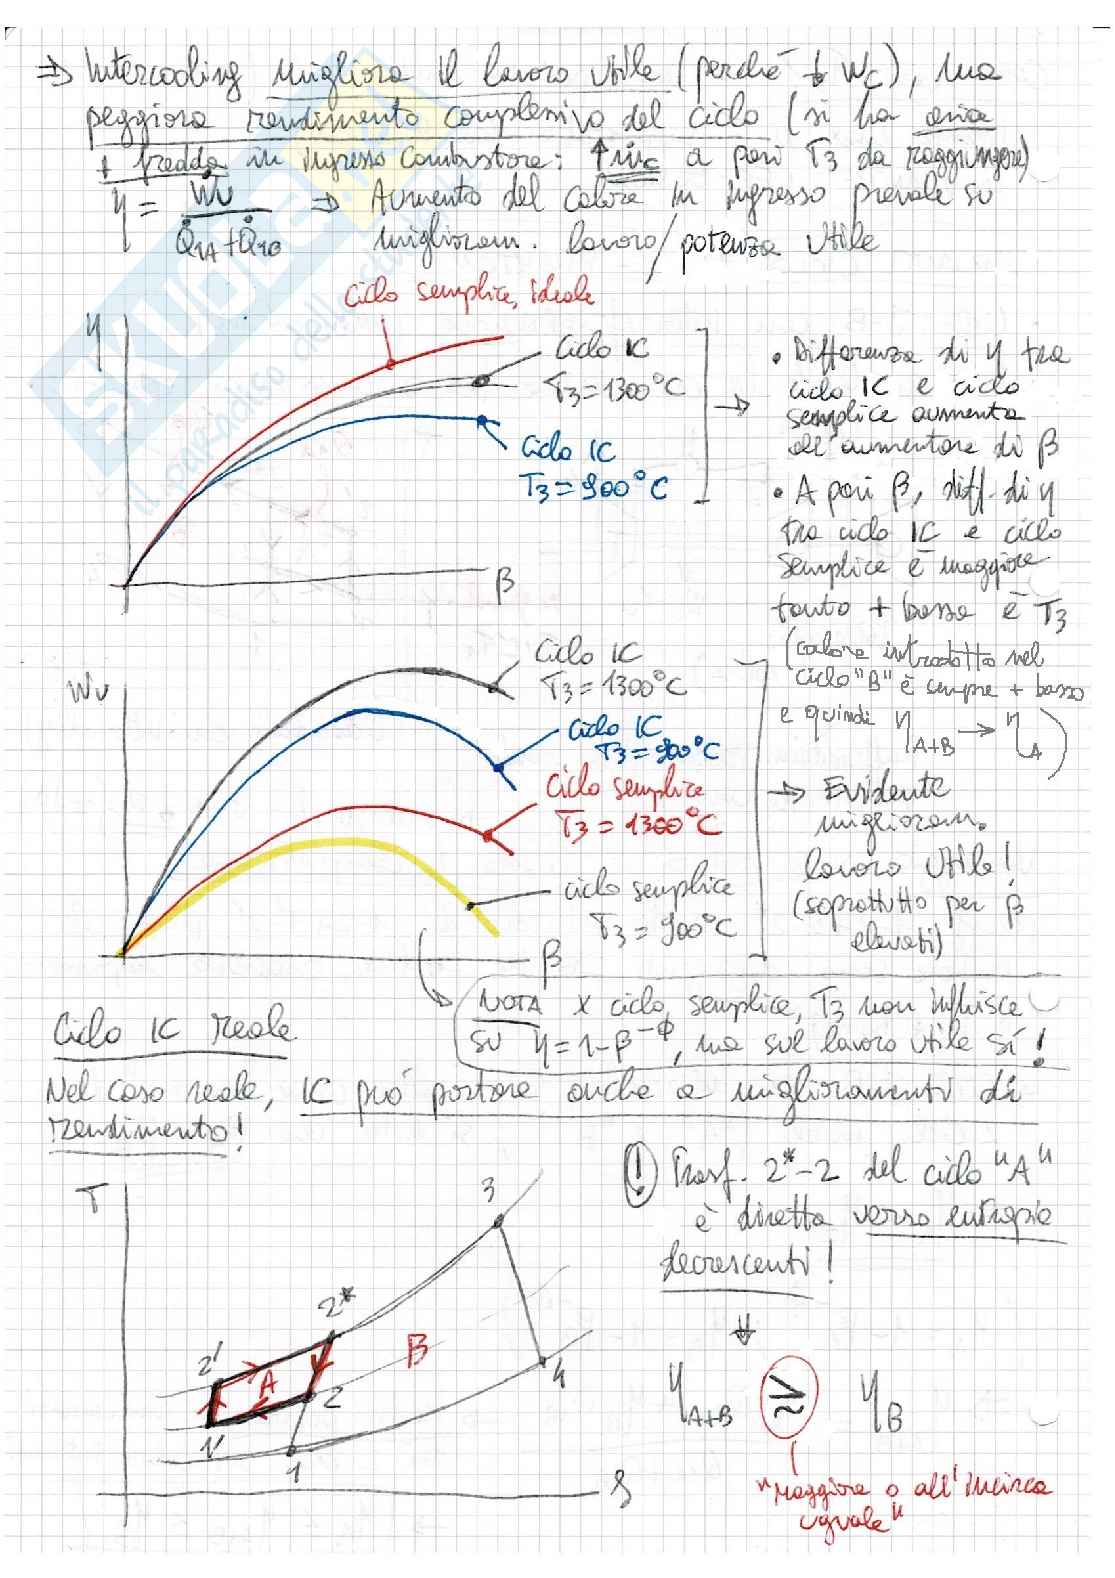 ⇒ Intercooling migliora il lavoro utile (perché ↓ Wc), ma
peggiora rendimento complessivo del ciclo (si ha aria
+ fredda in ingresso combustore: ↑ṁc a pari T3 da raggiungere)
η = Wu / (Q̇1A + Q̇1B) ⇒ Aumento del calore in ingresso prevale su
miglioram. lavoro/potenza utile
ciclo semplice, ideale
η
Ciclo IC
T3=1300°C
Ciclo IC
T3=900°C
β
→
• Differenza di η tra
ciclo IC e ciclo
semplice aumenta
all'aumentare di β
• A pari β, diff. di η
tra ciclo IC e ciclo
semplice è maggiore
tanto + bassa è T3
(calore introdotto nel
ciclo "B" è sempre + basso
e quindi ηA+B → ηA)
Wu
Ciclo IC
T3=1300°C
Ciclo IC
T3=900°C
Ciclo semplice
T3=1300°C
ciclo semplice
T3=900°C
β
→ Evidente
miglioram.
lavoro utile!
(soprattutto per β
elevati)
NOTA x ciclo semplice, T3 non influisce
su η=1-β^-ϕ, ma sul lavoro utile sí!
Ciclo IC reale
Nel caso reale, IC può portare anche a miglioramenti di
rendimento!
T
3
2*
2'
A
B
2
1'
1
4
S
! Trasf. 2*-2 del ciclo "A"
è diretta verso entropie
decrescenti!
⇓
ηA+B ≳ ηB
"Maggiore o all'incirca
uguale"
SKUOLA
il paradiso dello studente